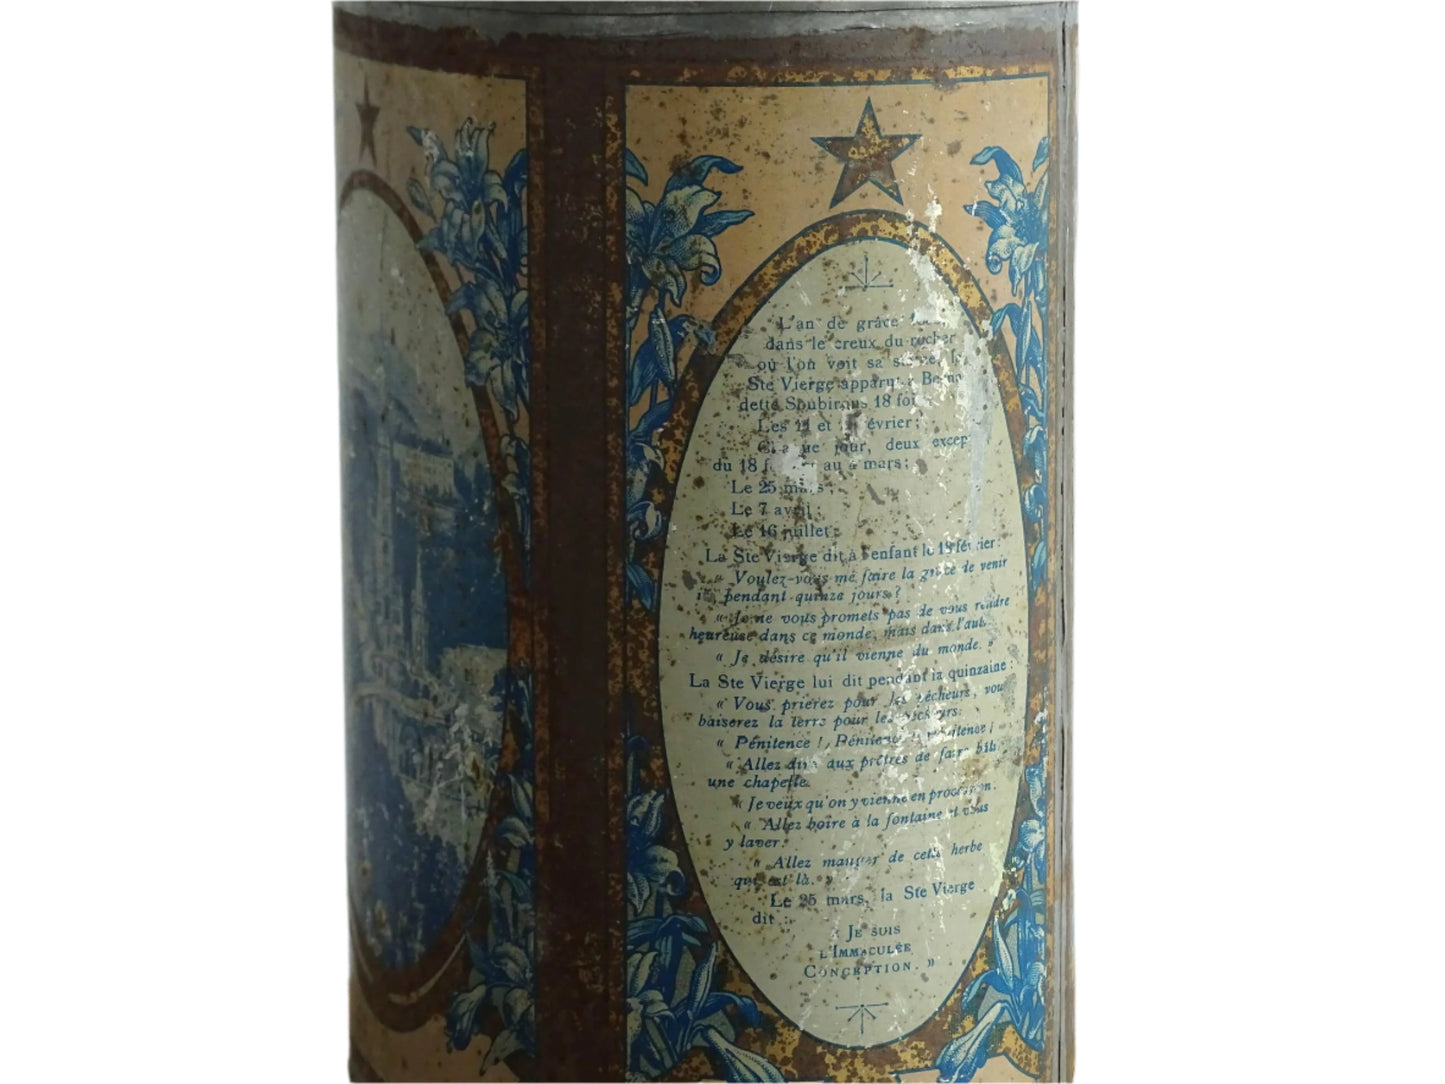 L'an de grâce
dans le creux du rocher
où l'on voit sa
Ste Vierge apparut à Berna
dette Soubirous 18 fois
Les 11 et février;
Chaque jour, deux except
du 18 au 4 mars;
Le 25 mars;
Le 7 avril;
Le 16 juillet.
La Ste Vierge dit à l'enfant le 18 février:
« Voulez-vous me faire la grâce de venir
ici pendant quinze jours?
« Je ne vous promets pas de vous rendre
heureuse dans ce monde, mais dans l'autre
« Je désire qu'il vienne du monde. »
La Ste Vierge lui dit pendant la quinzaine:
« Vous prierez pour les pécheurs, vous
baiserez la terre pour les pécheurs.
« Pénitence! Pénitence! pénitence!
« Allez dire aux prêtres de faire bâtir
une chapelle.
« Je veux qu'on y vienne en procession.
« Allez boire à la fontaine et vous
y laver.
« Allez manger de cette herbe
qui est là. »
Le 25 mars, la Ste Vierge
dit:
« Je suis
l'Immaculée
Conception. »